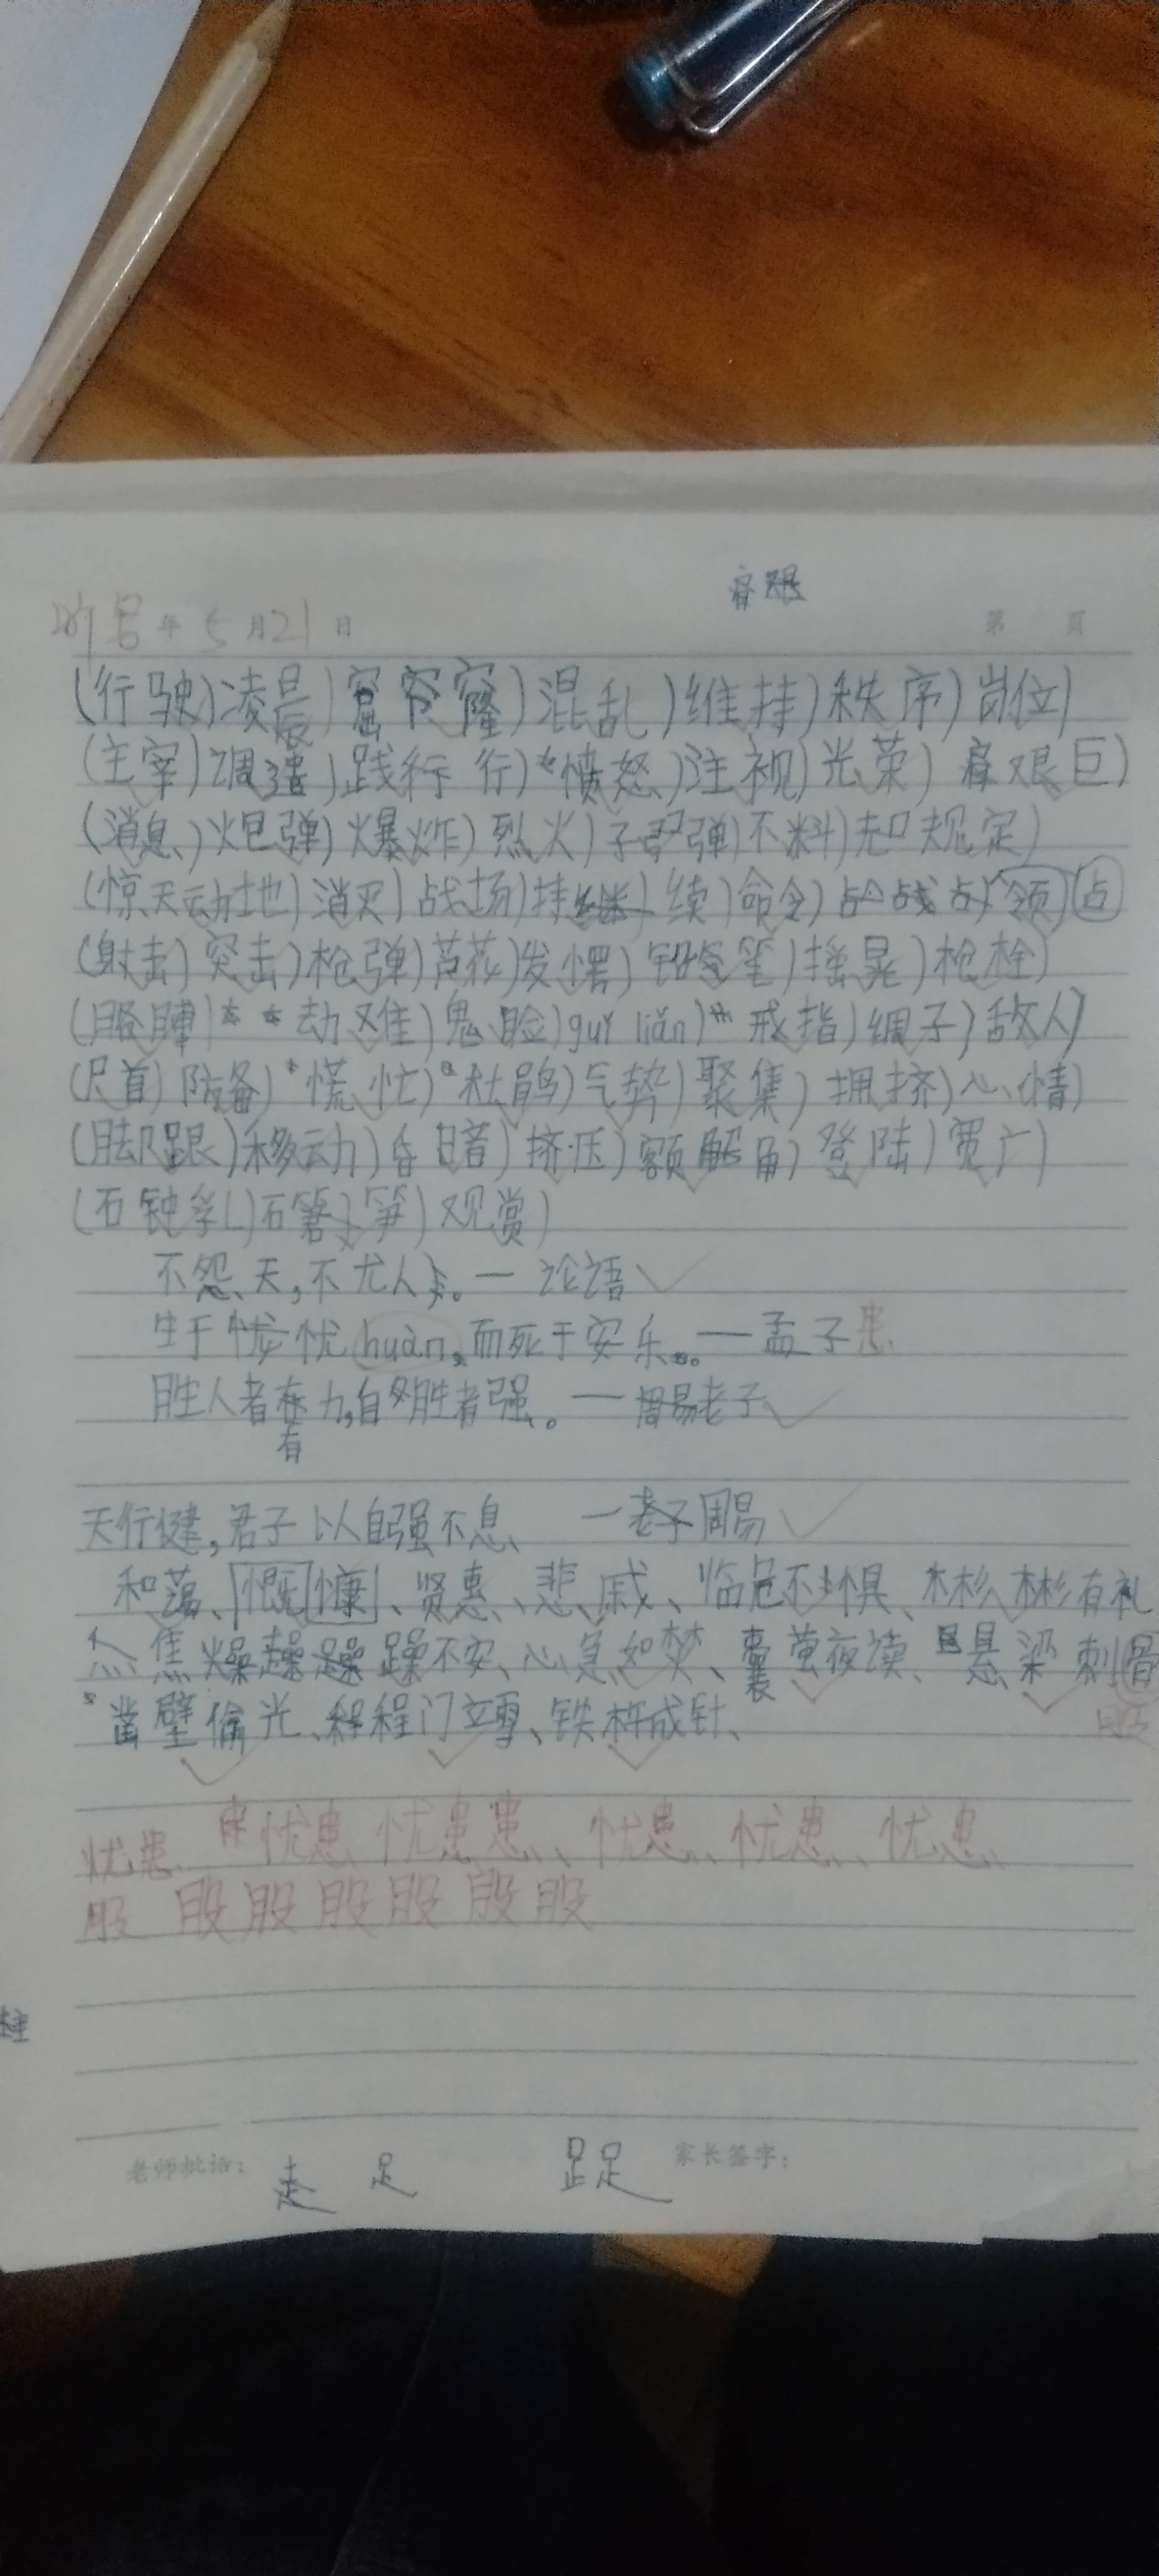 听写 年 5 月 21 日
第 页
(行驶)凌晨)窟窿)混乱)维持)秩序)岗位)
(主宰)调遣)践行)愤怒)注视)光荣)艰巨)
(消息)炮弹)爆炸)烈火)子弹)不料)规定)
(惊天动地)消灭)战场)持续)命令)占领)
(射击)突击)枪弹)芦花)发愣)铅笔)摇晃)枪栓)
劫难)鬼脸)guǐ liǎn)戒指)绸子)敌人)
防备)慌忙)杜鹃)气势)聚集)拥挤)心情)
(脚跟)移动)昏暗)挤压)额角)登陆)宽广)
(石钟乳)石笋)观赏)
不怨天,不尤人。— 论语
生于忧huàn,而死于安乐。— 孟子 患
胜人者有力,自胜者强。— 老子
天行健,君子以自强不息、 — 周易
和蔼、慨慷、贤惠、悲戚、临危不惧、彬彬有礼
焦躁不安、心急如焚、囊萤夜读、悬梁刺骨
股
凿壁偷光、程门立雪、铁杵成针、
忧患 忧患 忧患患、忧患、忧患、忧患、
股 股股股股股股
老师批语: 走 足 足 家长签字: